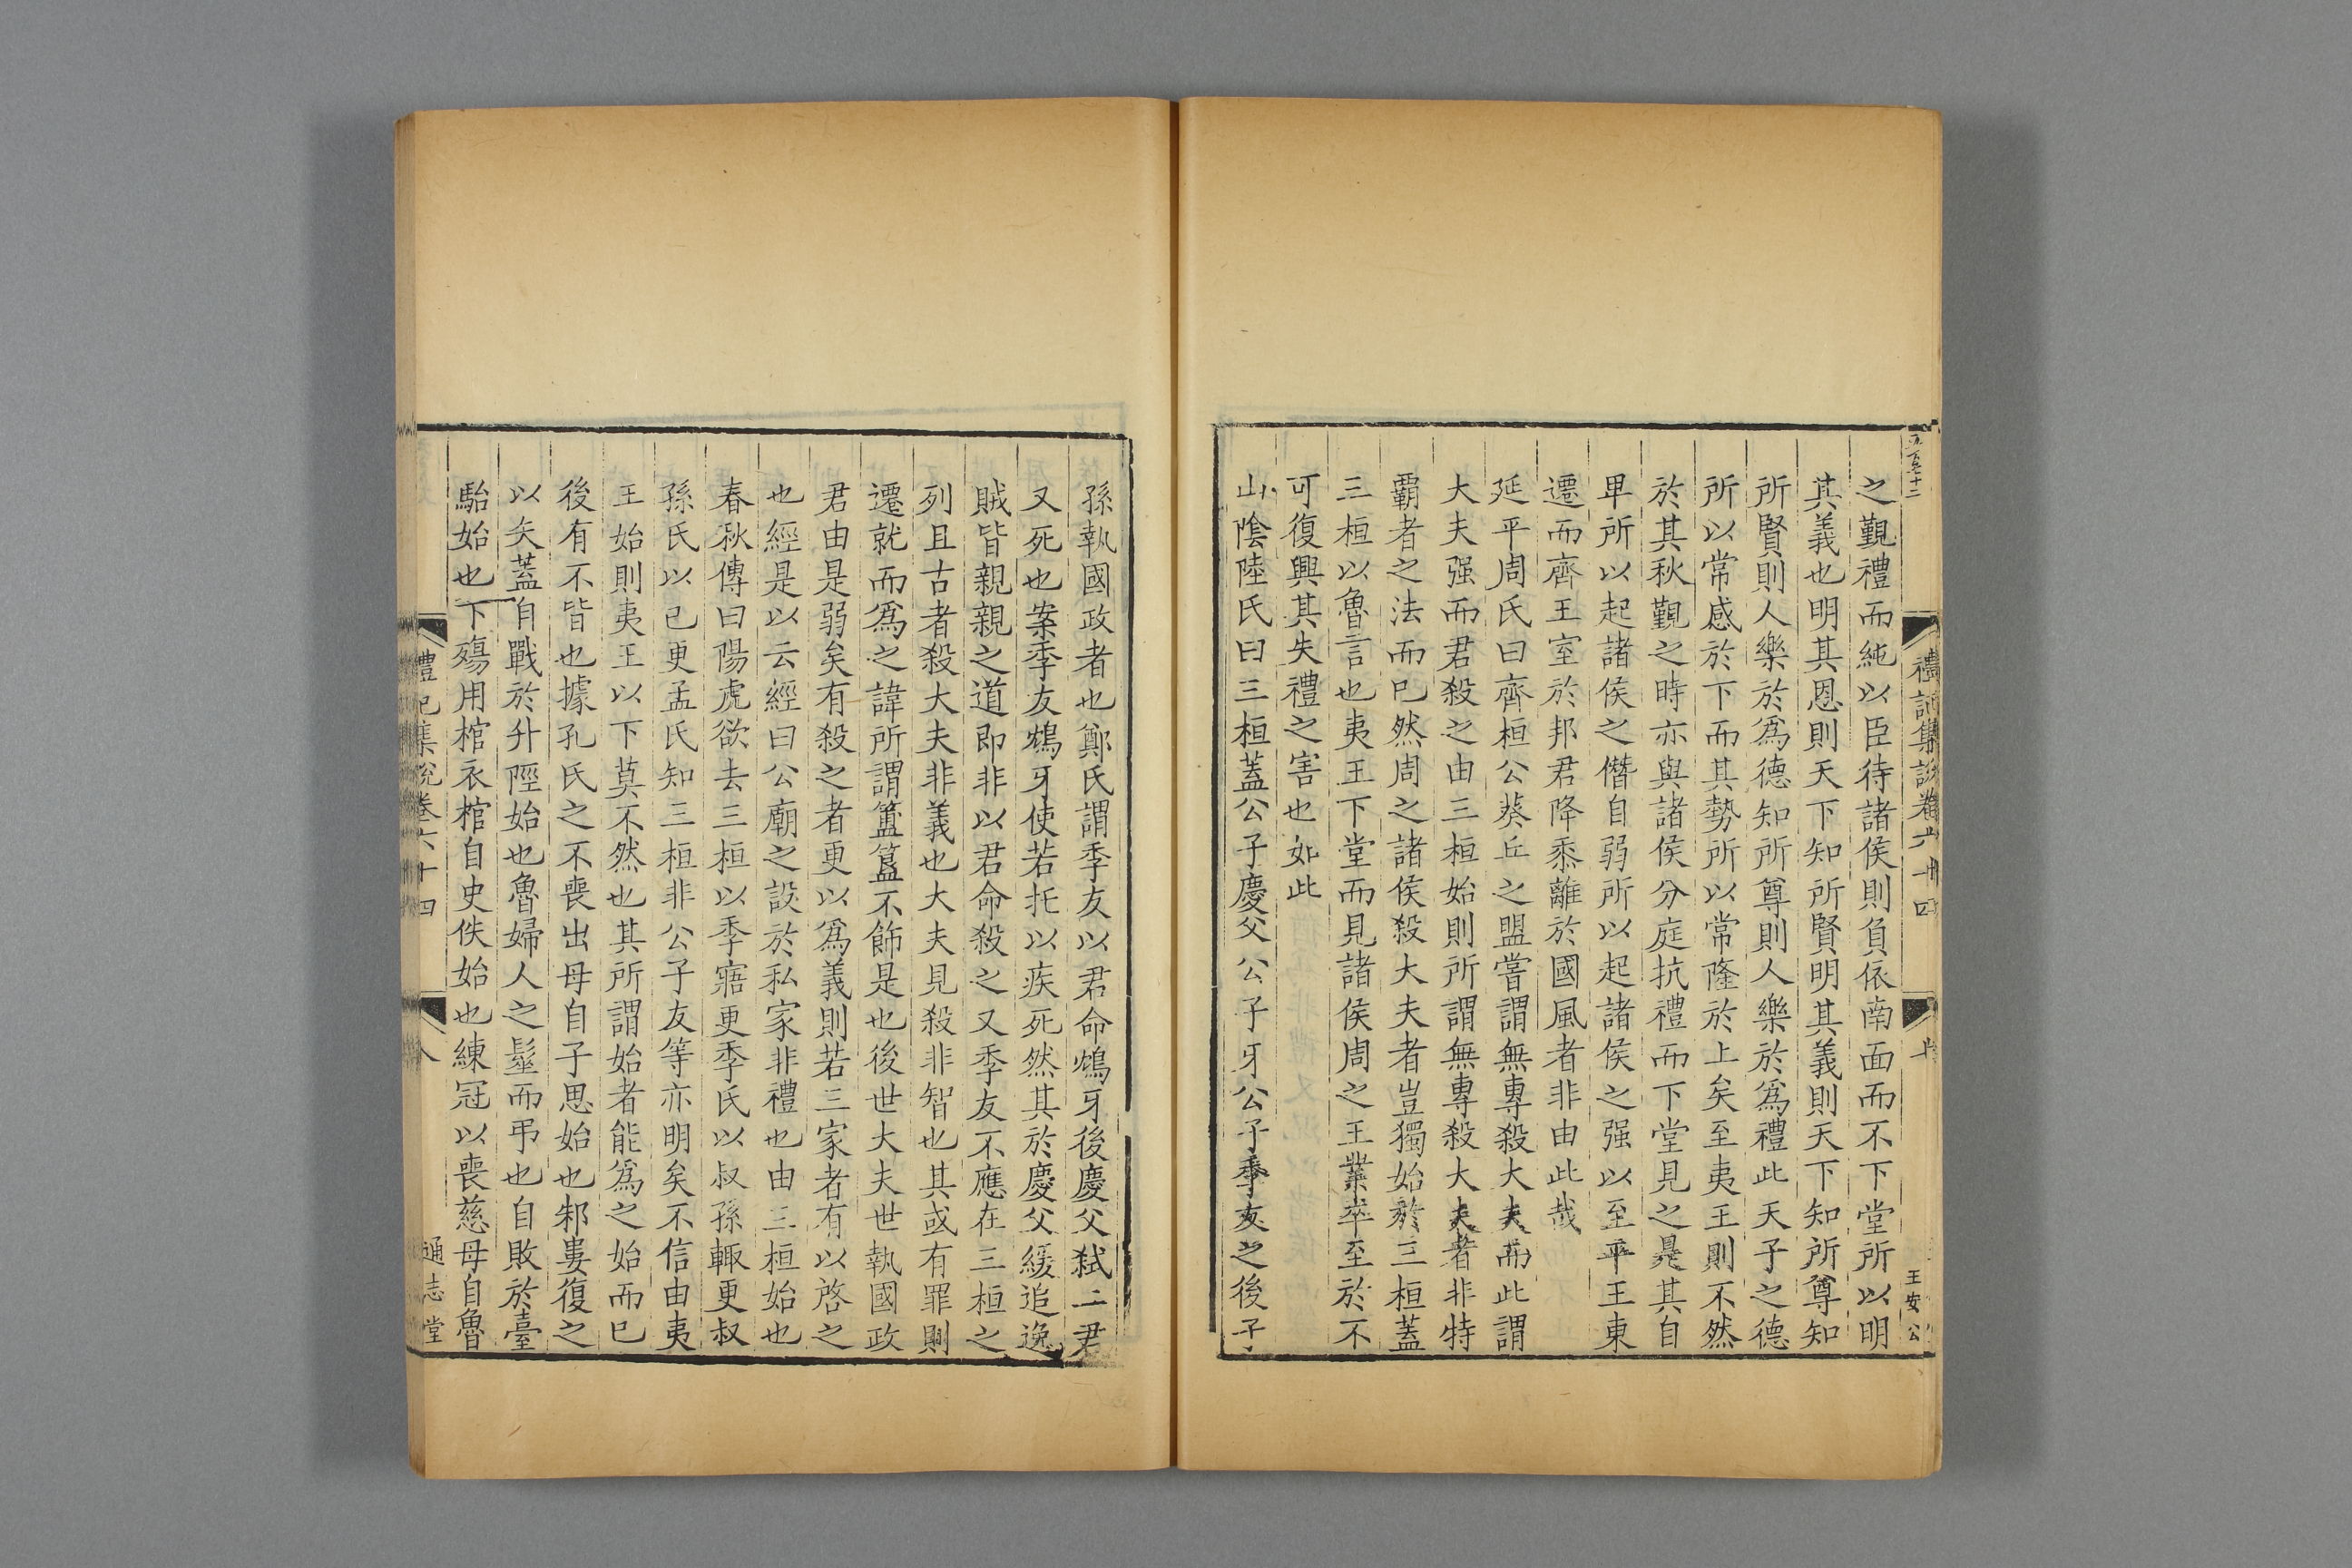 之覲禮而純以臣待諸侯則負依南面而不下堂所以明
其義也明其恩則天下知所賢明其義則天下知所尊知
所賢則人樂於爲德知所尊則人樂於爲禮此天子之德
所以常感於下而其勢所以常隆於上矣至夷王則不然
於其秋覲之時亦與諸侯分庭抗禮而下堂見之是其自
卑所以起諸侯之僭自弱所以起諸侯之强以至平王東
遷而齊王室於邦君降黍離於國風者非由此哉
延平周氏曰齊桓公葵丘之盟嘗謂無專殺大夫而此謂
大夫强而君殺之由三桓始則所謂無專殺大夫者非特
霸者之法而巳然周之諸侯殺大夫者豈獨始於三桓蓋
三桓以魯言也夷王下堂而見諸侯周之王業卒至於不
可復興其失禮之害也如此
山隂陸氏曰三桓蓋公子慶父公子牙公子季友之後子
禮記集說卷六十四
王安公
孫執國政者也鄭氏謂季友以君命鴆牙後慶父弑二君
又死也案季友鴆牙使若托以疾死然其於慶父緩追逸
賊皆親親之道即非以君命殺之又季友不應在三桓之
列且古者殺大夫非義也大夫見殺非智也其或有罪則
遷就而爲之諱所謂簠簋不飾是也後世大夫世執國政
君由是弱矣有殺之者更以爲義則若三家者有以啓之
也經是以云經曰公廟之設於私家非禮也由三桓始也
春秋傳曰陽虎欲去三桓以季寤更季氏以叔孫輒更叔
孫氏以已更孟氏知三桓非公子友等亦明矣不信由夷
王始則夷王以下莫不然也其所謂始者能爲之始而巳
後有不皆也據孔氏之不喪出母自子思始也邾婁復之
以矢蓋自戰於升陘始也魯婦人之髽而弔也自敗於臺
駘始也下殤用棺衣棺自史佚始也練冠以喪慈母自魯
禮記集說卷六十四
八
通志堂